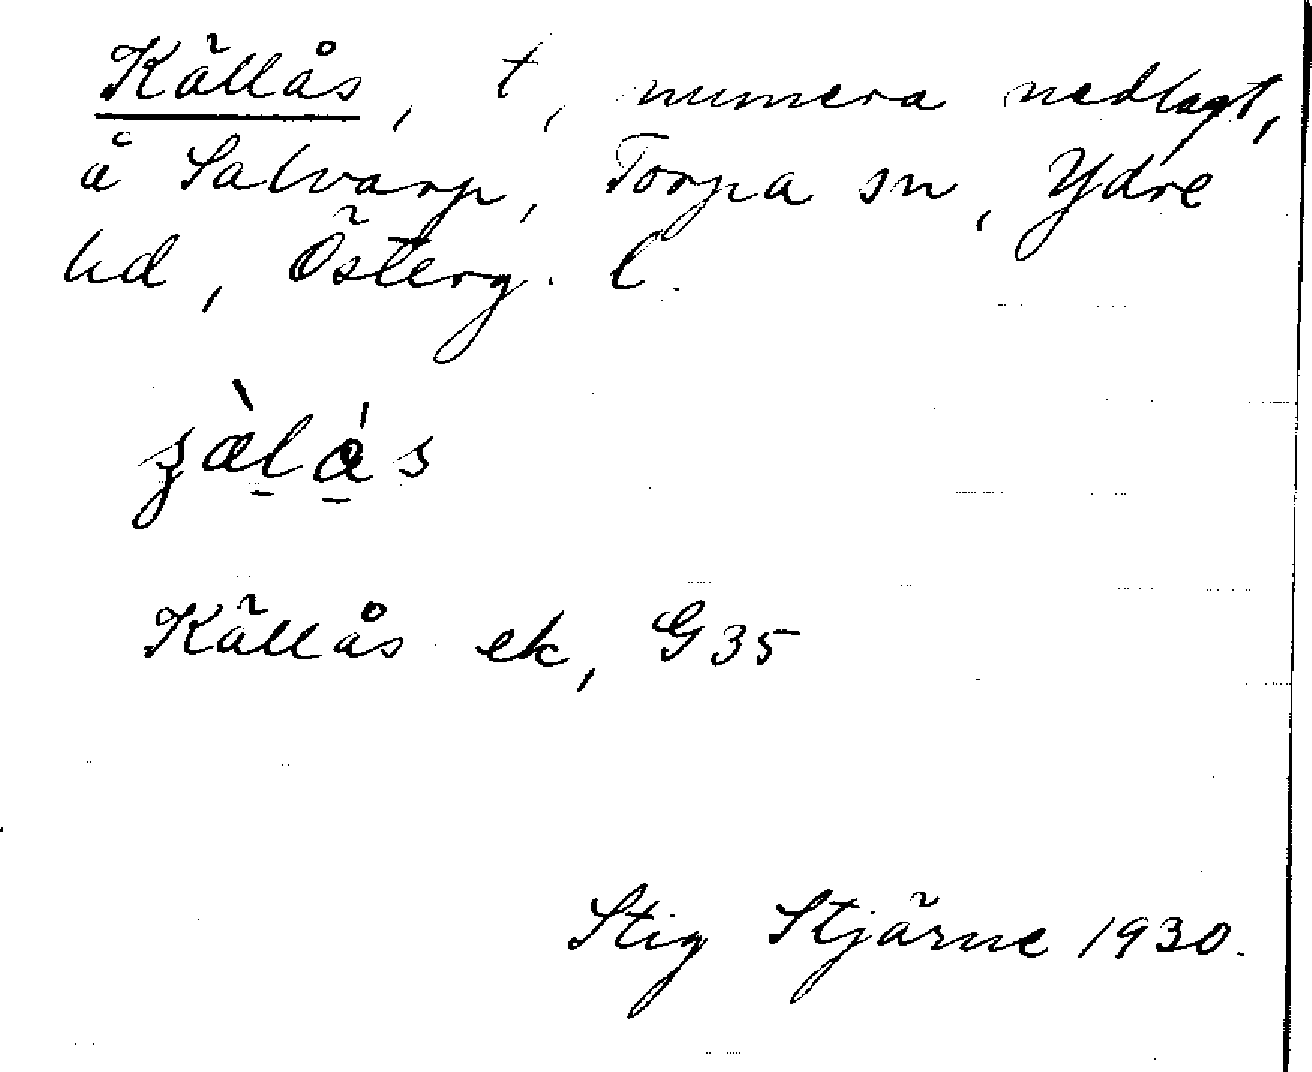 Källås, t, numera nedlagt,
å Salvarp, Torpa sn, Ydre
hd, Österg. l.
Källås ek, G35
Stig Stjärne 1930.